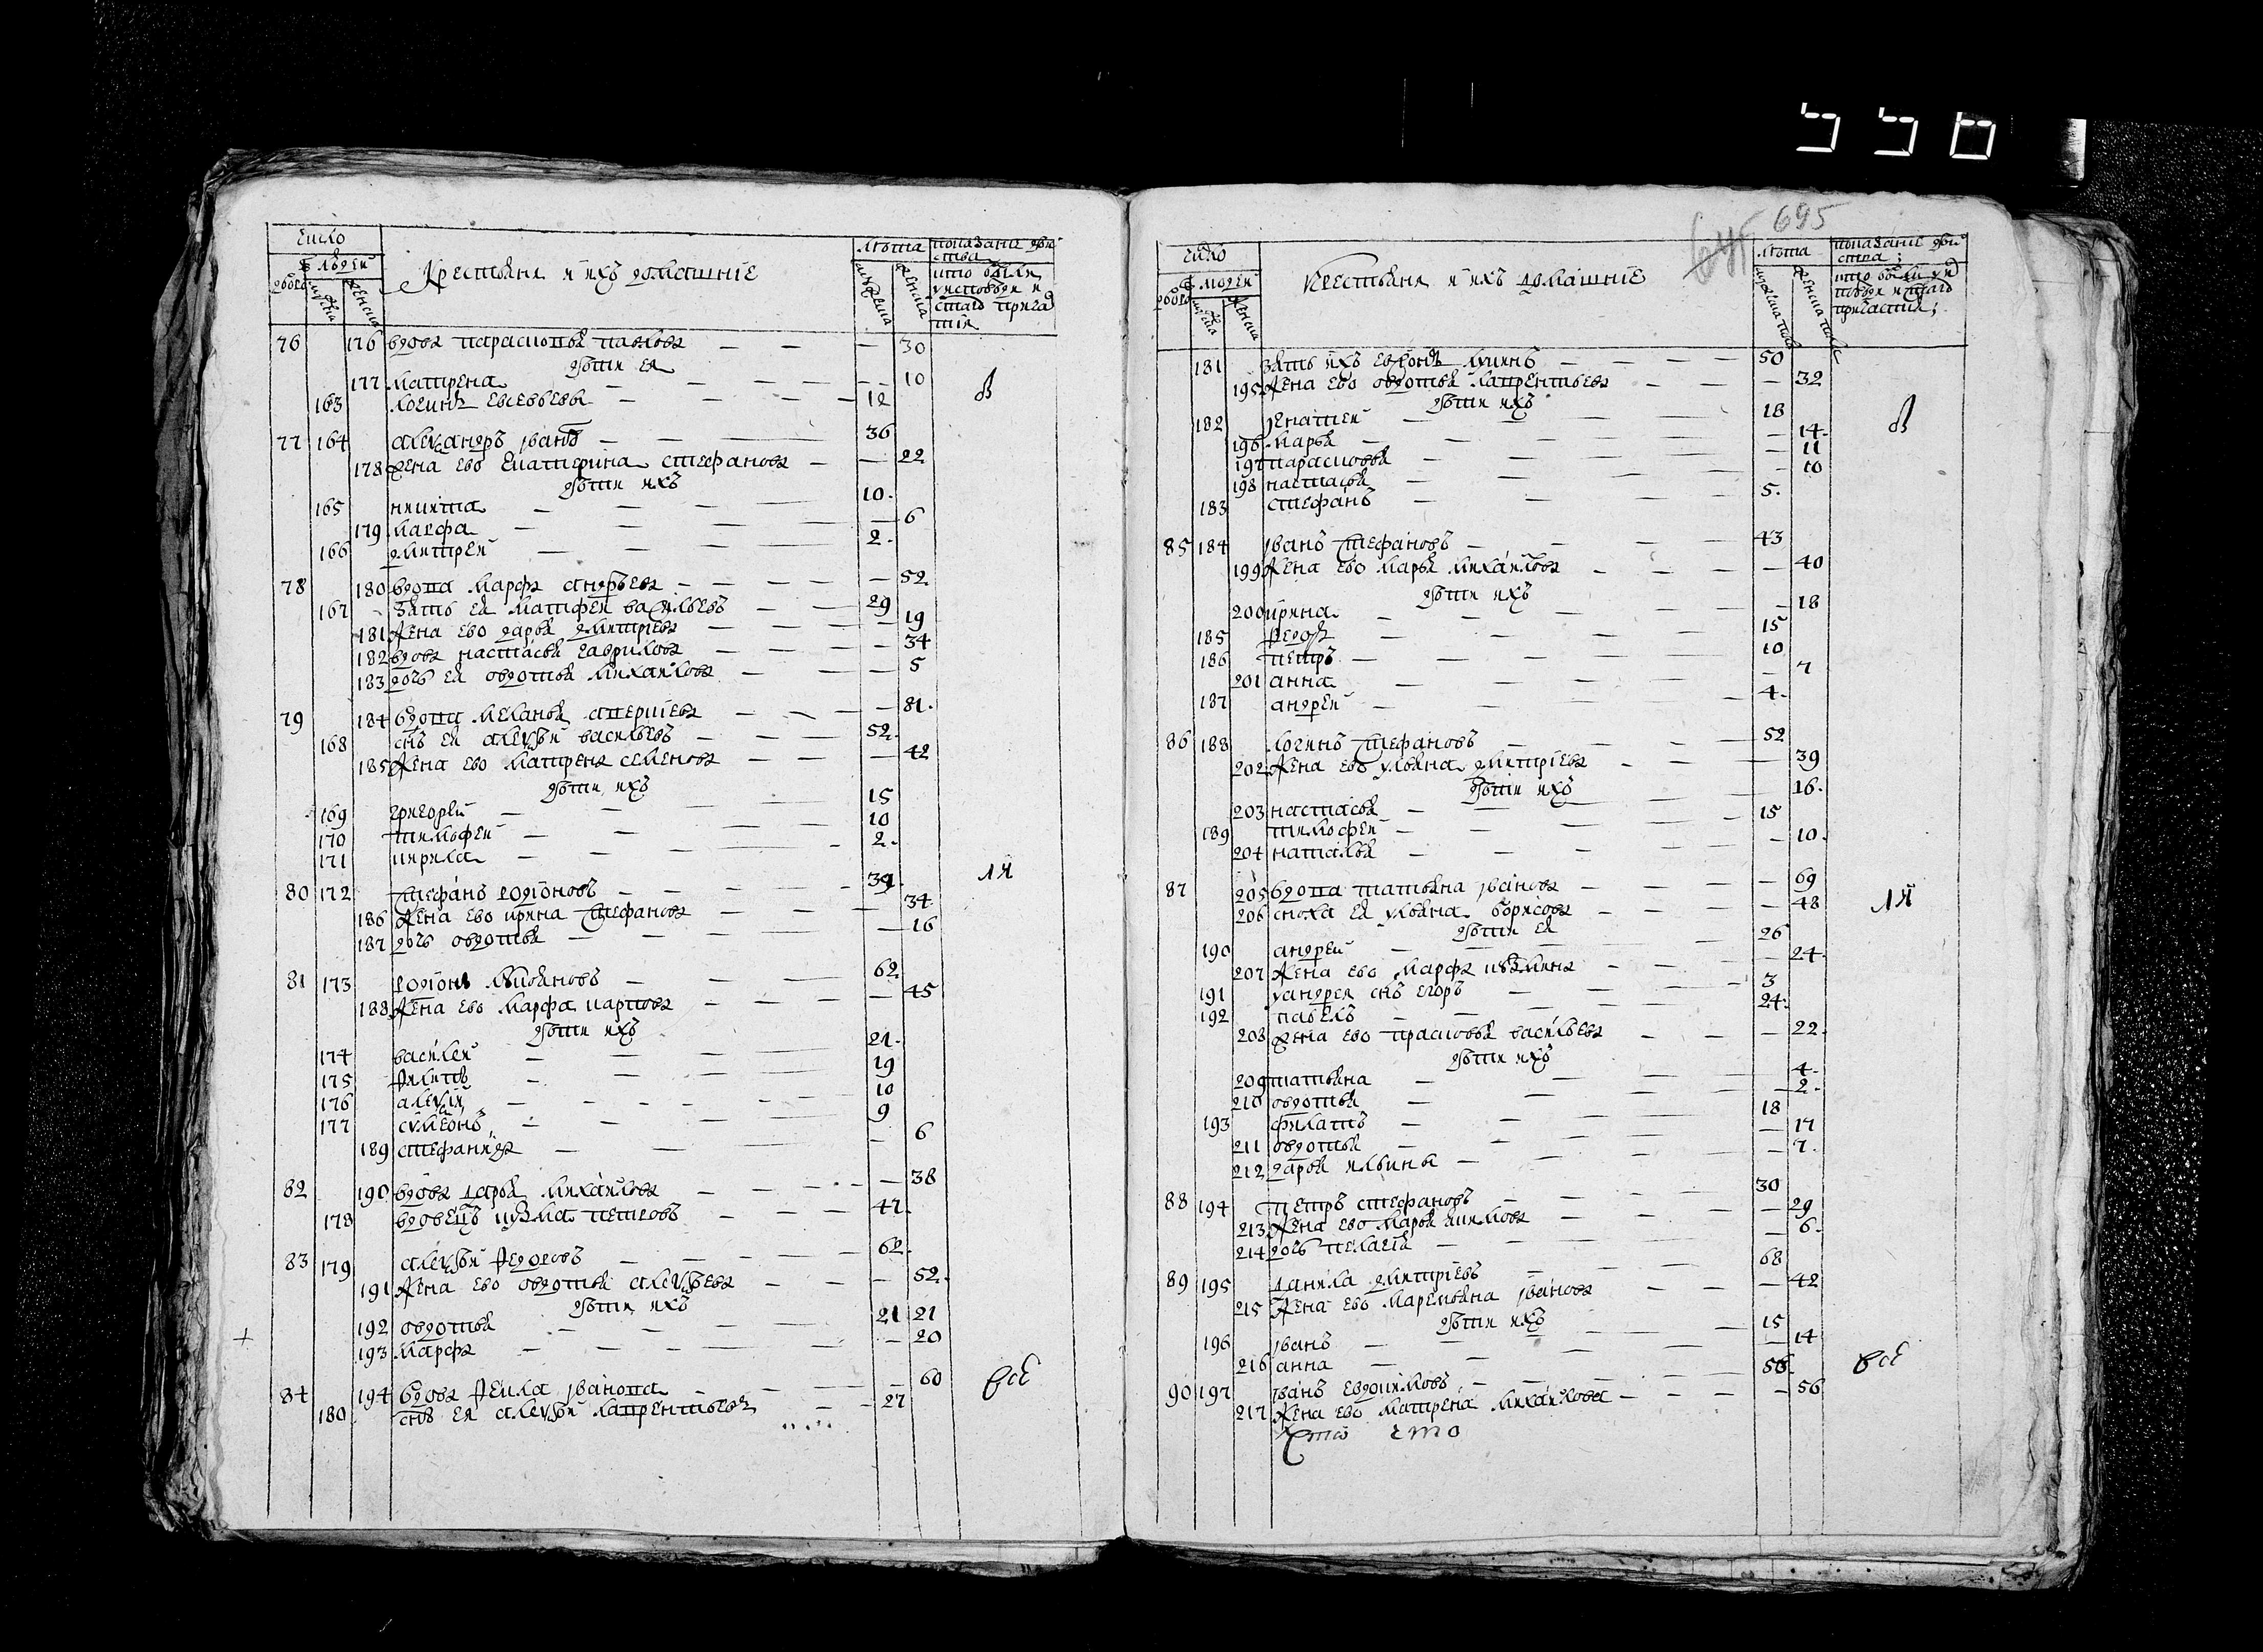 550
число
людей
Крестьяня и ихъ домашніе
лѣта
показание дѣи
ства
кто были
у исповѣди и
стаго прича
тія
76 176 вдова парасковья павлова — 30
дѣти ея
177 матрена — 10
163 логинъ евсевьевъ — 12
77 164 алеѯандръ іванѡ — 36
178 жена ево екатерина стефанова — 22
дѣти ихъ
165 никита — 10
179 марфа — 6
166 дмитреи — 2
78 180 вдова марфа андрѣева — 52
167 зять ея матфеи василіевъ — 29
181 жена ево дарья дмитріева — 19
182 вдова настасья гаврилова — 34
183 дочь ея овдотья михаилова — 5
79 184 вдова меланья
— 81
168 снъ ея алеѯѣи васильевъ — 52
185 жена ево матрена семенова — 42
дѣти ихъ
169 григореи — 15
170 тимофеи — 10
171 кирила — 2
80 172 стефанъ родіоновъ — 39
186 жена ево ирина стефанова — 34
187 дочь овдотья — 16
81 173 родіонъ — 62
188 жена ево марфа карпова — 45
дѣти ихъ
174 василеи — 21
175 филипъ — 19
176 алеѯіи — 10
177 сѵмеонъ — 9
189 стефанида — 6
82 190 вдова дарья михаилова — 38
178 вдовецъ кузма петровъ — 47
83 179 алеѯѣи федоровъ — 62
191 жена ево овдотья алеѯѣева — 52
дѣти ихъ
192 овдотья — 21 21
193 марфа — 20
84 194 вдова фекла іванова — 60
180 снъ ея алеѯѣи лаврентьевъ — 27
в
ся
всѣ
695
число
людей
Крестьяня и ихъ домашніе
лѣта
показаніе дѣи
ства
кто были у ис
повѣди и стаго
причастия
181 зять ихъ — 50
195 жена ево овдотья лаврентьева — 32
дѣти ихъ
182 игнатеи — 18
196 марья — 14
197 парасковья — 11
198 настасья — 10
183 стефанъ — 5
85 184 іванъ стефановъ — 43
199 жена ево марья михаилова — 40
дѣти ихъ
200 ирина — 18
185 федоръ — 15
186 петръ — 10
201 анна — 7
187 андреи — 4
86 188 логинъ стефановъ — 52
202 жена евѡ ульяна дмитріева — 39
дѣти ихъ
203 настасья — 16
189 тимофеи — 15
204 наталья — 10
87 205 вдова татьяна іванова — 69
206 сноха ея ульяна борисова — 48
дѣти ея
190 андреи — 26
207 жена ево марфа кузмина — 24
191 у андрея снъ егоръ — 3
192 павелъ — 24
208 жена ево прасковья васильева — 22
дѣти ихъ
209 татьяна — 4
210 овдотья — 2
193 филатъ — 18
211 овдотья — 17
212 дарья ильины — 7
88 194 петръ стефановъ — 30
213 жена ево марья — 29
214 дочь пелагія — 6
89 195 данила дмитріевъ — 68
215 жена ево маремьяна іванова — 42
дѣти ихъ
196 іванъ — 15
216 анна — 14
90 197 іванъ евдокимовъ — 56
217 жена ево матрена михаилова — 56
в
ся
всѣ